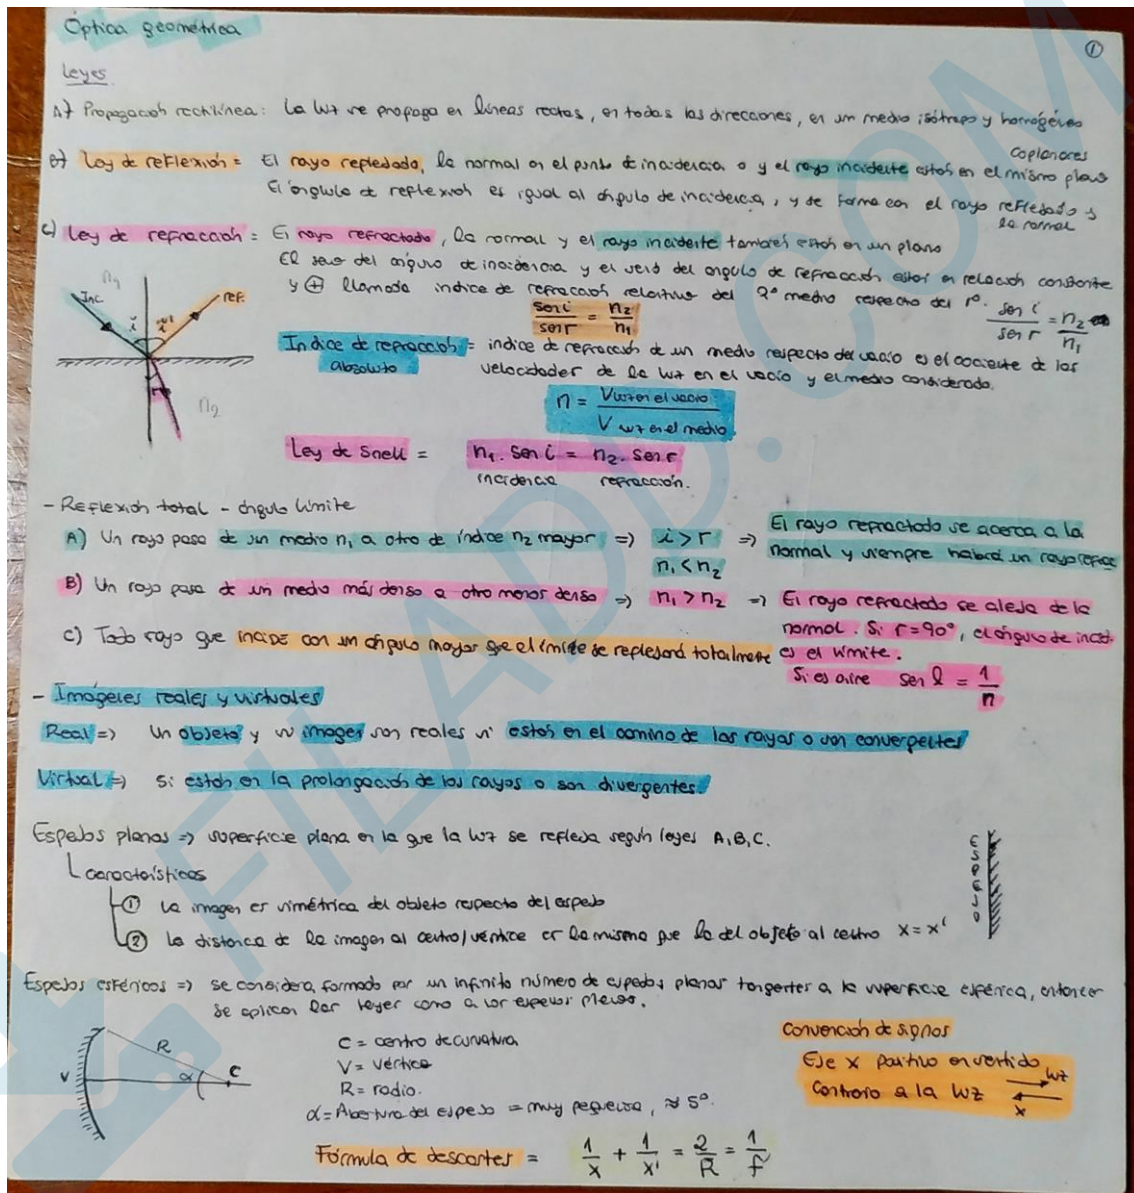 Óptica geométrica
①
Leyes
A) Propagación rectilínea: La luz se propaga en líneas rectas, en todas las direcciones, en un medio isótropo y homogéneo
Coplanares
B) Ley de reflexión = El rayo reflejado, la normal en el punto de incidencia o y el rayo incidente están en el mismo plano
El ángulo de reflexión es igual al ángulo de incidencia, y se forma con el rayo reflejado y
la normal
C) Ley de refracción = El rayo refractado, la normal y el rayo incidente también están en un plano
El seno del ángulo de incidencia y el seno del ángulo de refracción están en relación constante
y ⊕ llamada índice de refracción relativo del 2º medio respecto del 1º. sen i / sen r = n2 / n1
sen i / sen r = n2 / n1
n1
Inc
ref.
i
r
n2
Indice de refracción = indice de refracción de un medio respecto del vacío es el cociente de las
absoluto
velocidades de la luz en el vacío y el medio considerado.
n = V luz en el vacio / V luz en el medio
Ley de Snell = n1. sen i = n2. sen r
incidencia refracción.
- Reflexión total - ángulo límite
A) Un rayo pasa de un medio n1 a otro de índice n2 mayor => i > r => El rayo refractado se acerca a la
n1 < n2 normal y siempre habrá un rayo
B) Un rayo pasa de un medio más denso a otro menos denso => n1 > n2 => El rayo refractado se aleja de la
normal. Si r = 90°, el ángulo de incid.
es el límite.
C) Todo rayo que incide con un ángulo mayor que el límite se reflejará totalmente
Si es aire sen l = 1 / n
- Imágenes reales y virtuales
Real => Un objeto y su imagen son reales si están en el camino de los rayos o son convergentes
Virtual => Si están en la prolongación de los rayos o son divergentes.
Espejos planos => superficie plana en la que la luz se refleja según leyes A, B, C.
ESPEJO
características
① La imagen es simétrica del objeto respecto del espejo
② La distancia de la imagen al centro/vértice es la misma que la del objeto al centro x = x'
Espejos esféricos => se considera formado por un infinito número de espejos planos tangentes a la superficie esférica, entonces
se aplican las leyes como a los espejos planos.
V
R
α
C
C = centro de curvatura
V = vértice
R = radio.
α = Abertura del espejo = muy pequeña, ≈ 5°.
Convención de signos
Eje x positivo en sentido
contrario a la luz
luz
x
Fórmula de descartes = 1/x + 1/x' = 2/R = 1/f
FILADD.COM